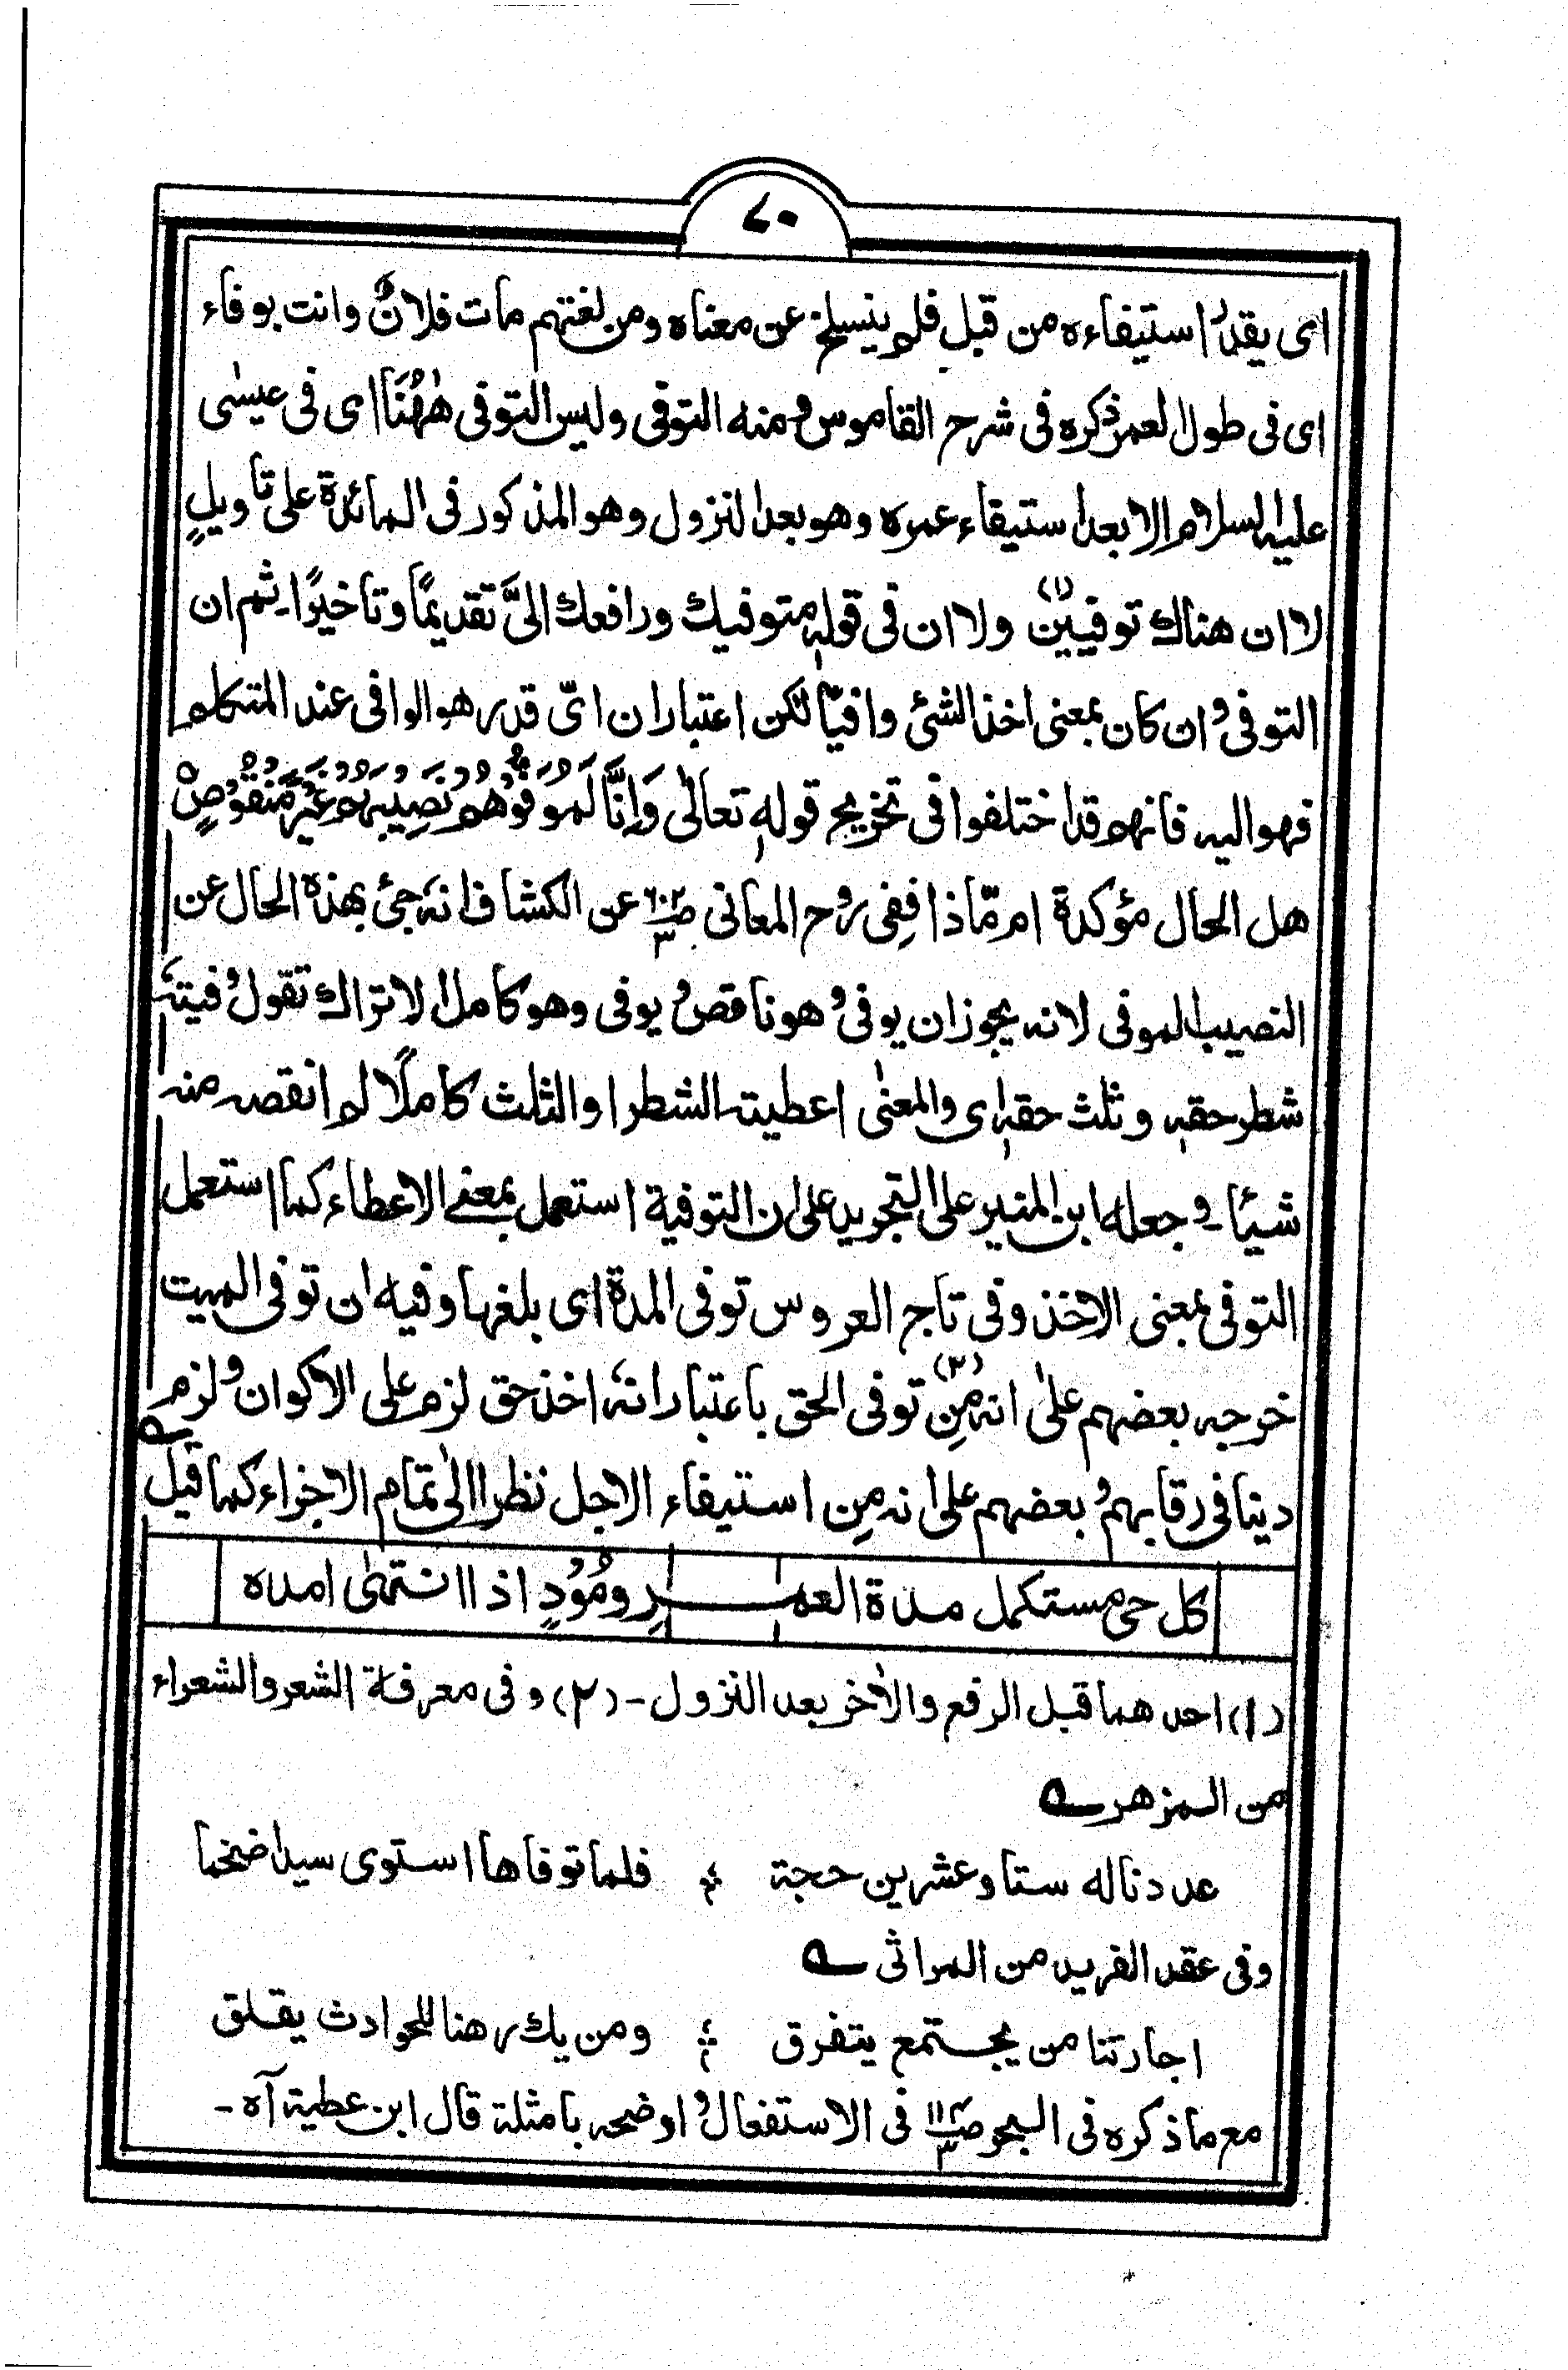 ٧٠
ای یقدر استیفاءه من قبل فلم ینسلخ عن معناه ومن لغتهم مات فلانٌ وانت بوفاء
ای فی طول العمر ذکره فی شرح القاموس ومنه التوفی ولیس التوفی هٰهُنَا ای فی عیسٰی
علیه السلام الا بعد استیفاء عمره وهو بعد النزول وهو المذکور فی المائدة علی تاویلٍ
لا ان هناك توفیین (۱) ولا ان فی قوله متوفیك ورافعك الیَّ تقدیمًا وتاخیرًا۔ ثم ان
التوفی وان کان بمعنی اخذ الشئ وافیّا لکن اعتبار ان ایّ قدر هو الوافی عند المتکلم
فهو الیه فانهم قد اختلفوا فی تخریج قوله تعالٰی وَاِنَّا لَمُوَفُّوْهُمْ نَصِیْبَهُمْ غَیْرَ مَنْقُوْصٍ
هل الحال مؤکدة ام مّاذا ففی روح المعانی صـ۶۰۲/۳ عن الکشاف انهٗ جئ بهذه الحال عن
النصیب الموفی لانه یجوز ان یوفی وهو ناقص ویوفی وهو کامل الا تراك تقول وفیتهٗ
شطر حقهٖ وثلث حقهٖ ای والمعنٰی اعطیته الشطر او الثلث کاملًا لم انقصه منه
شیئا۔ وجعله ابن المنیر علی التجرید علی ان التوفیة استعمل بمعنی الاعطاء کما استعمل
التوفی بمعنی الاخذ وفی تاج العروس توفی المدة ای بلغها وفیه ان توفی المیت
خرجه بعضهم علیٰ انه مِن (۲) توفی الحق باعتبار انهٗ اخذ حق لزم علی الاکوان ولزم
دینا فی رقابهم وبعضهم علی انه مِن استیفاء الاجل نظرا الیٰ تمام الاجزاء کما قیل ؎
کل حی مستکمل مدة العمـــرِ ومُوْدٍ اذا انتهٰی امده
(۱) احدهما قبل الرفع والاٰخر بعد النزول۔ (۲) وفی معرفة الشعر والشعراء
من المزهر ؎
عددنا له ستا وعشرین حجة ؞ فلما توفاها استوی سیدا ضخما
وفی عقد الفرید من المراثی ؎
اجارتنا من یجتمع یتفرق ؞ ومن یك رهنا للحوادث یغلق
مع ما ذکره فی البحر صـ۱۱۲/۳ فی الاستفعال واوضحه بامثلة قال ابن عطیة آه۔